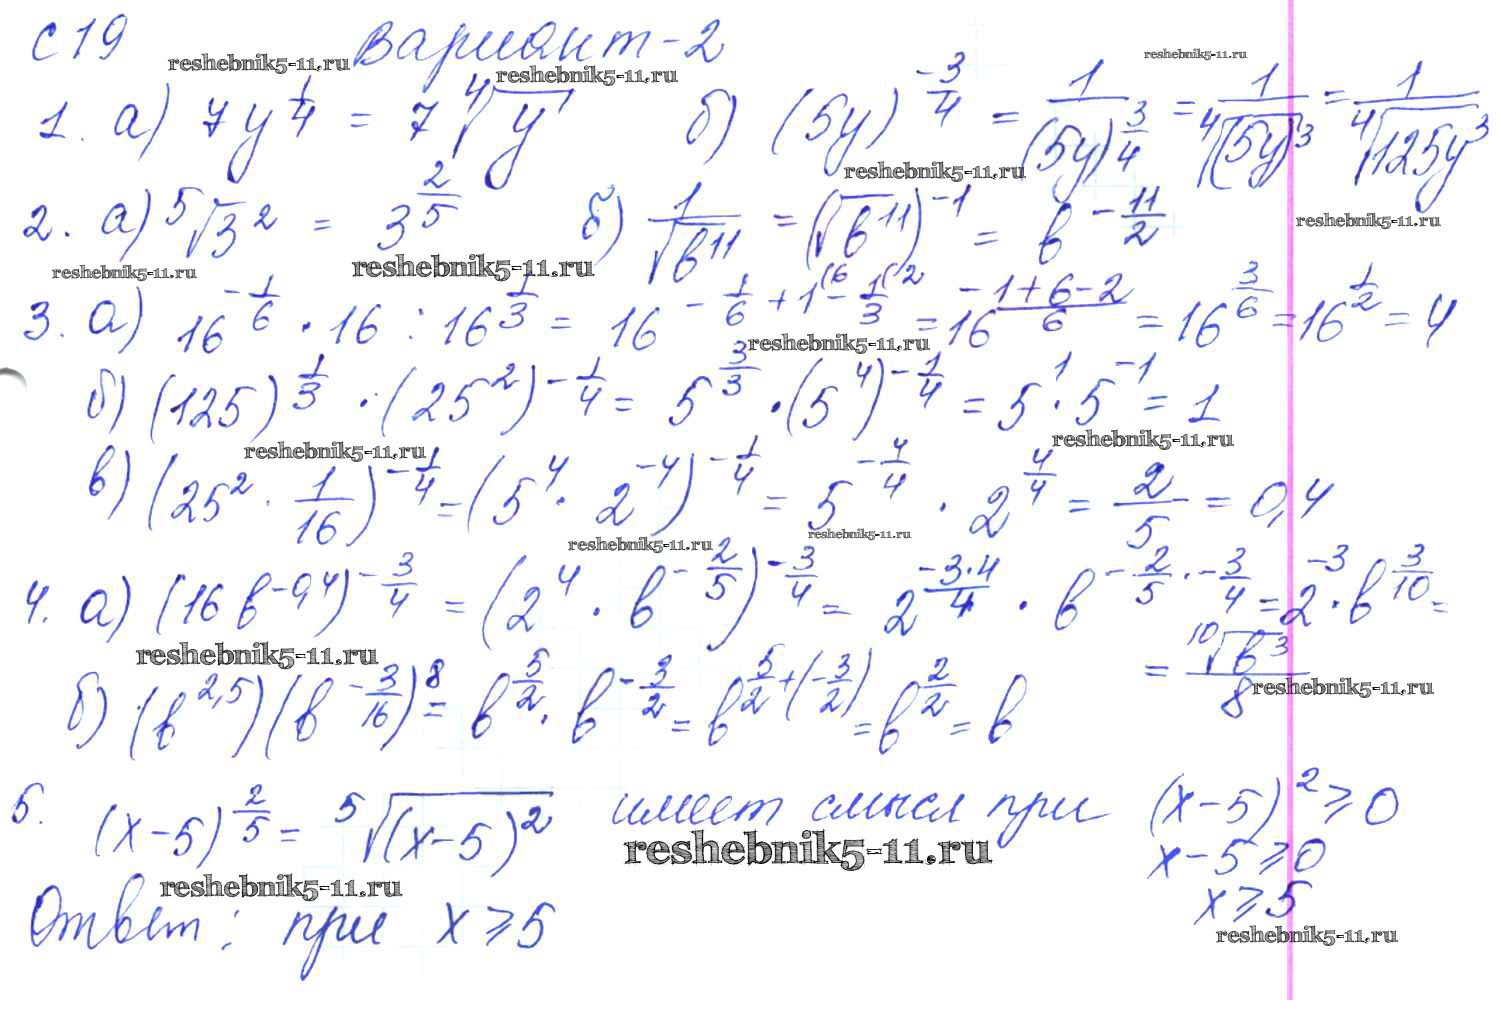 С 19 Вариант - 2
reshebnik5-11.ru reshebnik5-11.ru reshebnik5-11.ru
1. а) 7y^{1/4} = 7 ⁴√y б) (5y)^{-3/4} = 1/(5y)^{3/4} = 1/⁴√(5y)³ = 1/⁴√125y³
reshebnik5-11.ru reshebnik5-11.ru
2. а) ⁵√3² = 3^{2/5} б) 1/√b¹¹ = (√b¹¹)^{-1} = b^{-11/2}
reshebnik5-11.ru reshebnik5-11.ru
3. а) 16^{-1/6} · 16 : 16^{1/3} = 16^{-1/6 + 1^{(6} - 1/3^{(2}} = 16^{(-1+6-2)/6} = 16^{3/6} = 16^{1/2} = 4
reshebnik5-11.ru
б) (125)^{1/3} · (25²)^{-1/4} = 5^{3/3} · (5⁴)^{-1/4} = 5¹ · 5^{-1} = 1
reshebnik5-11.ru reshebnik5-11.ru
в) (25² · 1/16)^{-1/4} = (5⁴ · 2^{-4})^{-1/4} = 5^{-4/4} · 2^{4/4} = 2/5 = 0,4
reshebnik5-11.ru reshebnik5-11.ru
4. а) (16 b^{-0,4})^{-3/4} = (2⁴ · b^{-2/5})^{-3/4} = 2^{-3·4/4} · b^{-2/5 · -3/4} = 2^{-3} · b^{3/10} =
= ¹⁰√b³/8
reshebnik5-11.ru reshebnik5-11.ru
б) (b^{2,5})(b^{-3/16})⁸ = b^{5/2} · b^{-3/2} = b^{5/2+(-3/2)} = b^{2/2} = b
5. (x-5)^{2/5} = ⁵√(x-5)² имеет смысл при (x-5)² ≥ 0
reshebnik5-11.ru x-5 ≥ 0
reshebnik5-11.ru x ≥ 5
Ответ: при x ≥ 5
reshebnik5-11.ru